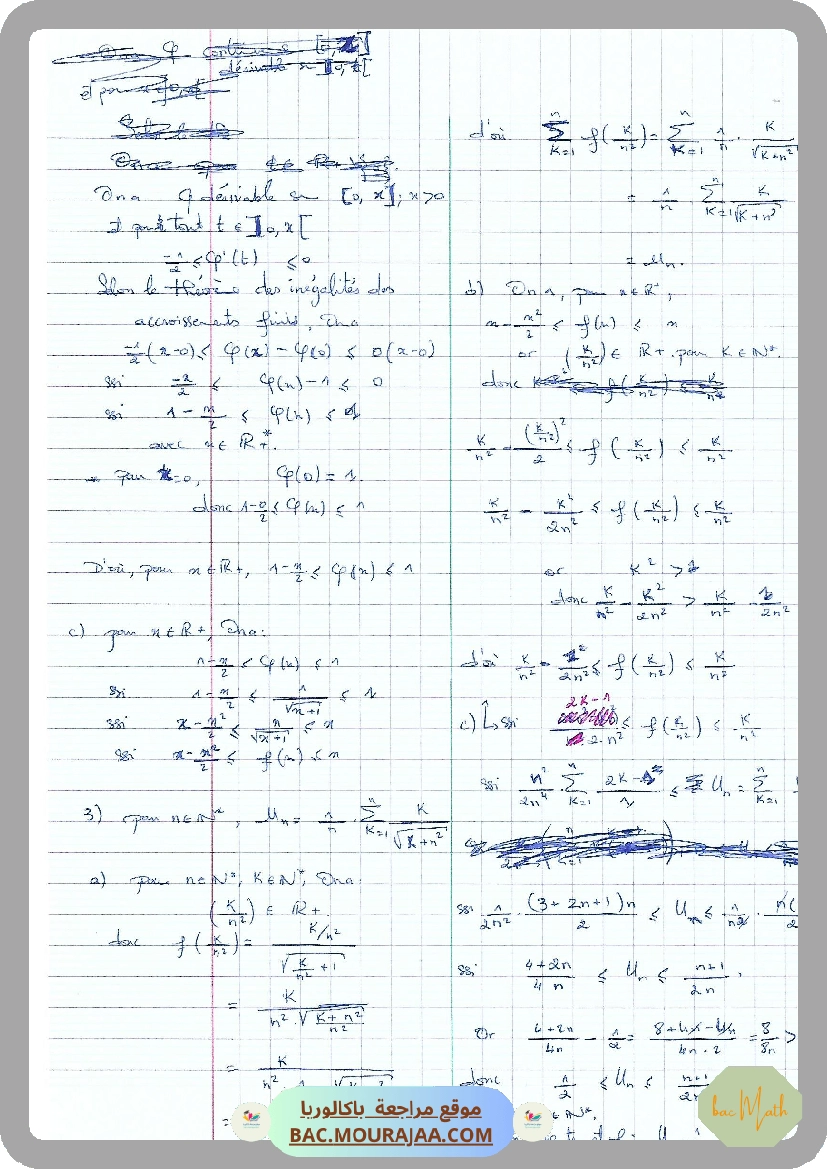 On a φ dérivable sur [0, x] ; x > 0
et pour tout t ∈ ]0, x[
-1/2 ≤ φ'(t) ≤ 0
Selon le théorème des inégalités des
accroissements finis, On a
-1/2 (x-0) ≤ φ(x) - φ(0) ≤ 0(x-0)
ssi -x/2 ≤ φ(x) - 1 ≤ 0
ssi 1 - x/2 ≤ φ(x) ≤ 1
avec x ∈ ℝ*₊.
pour x=0, φ(0) = 1.
donc 1 - 0/2 ≤ φ(x) ≤ 1
D'où, pour x ∈ ℝ+, 1 - x/2 ≤ φ(x) ≤ 1
c) pour x ∈ ℝ+, On a :
1 - x/2 ≤ φ(x) ≤ 1
ssi 1 - x/2 ≤ 1/√(x+1) ≤ 1
ssi x - x²/2 ≤ x/√(x+1) ≤ x
ssi x - x²/2 ≤ f(x) ≤ x
3) pour n ∈ ℕ*, Un = 1/n · Σ_{K=1}^{n} K/√(K+n²)
a) pour n ∈ ℕ*, K ∈ ℕ*, On a :
(K/n²) ∈ ℝ+
donc f(K/n²) = (K/n²)/√(K/n² + 1)
= K/(n²·√((K+n²)/n²))
= K
d'où Σ_{K=1}^{n} f(K/n²) = Σ_{K=1}^{n} 1/n · K/√(K+n²)
= 1/n · Σ_{K=1}^{n} K/√(K+n²)
= Un.
b) On a, pour x ∈ ℝ+,
x - x²/2 ≤ f(x) ≤ x
or (K/n²) ∈ ℝ+ pour K ∈ ℕ*.
donc
K/n² - (K/n²)²/2 ≤ f(K/n²) ≤ K/n²
K/n² - K²/2n² ≤ f(K/n²) ≤ K/n²
or K² > 1
donc K/n² - K²/2n² > K/n² - 1/2n²
d'où K/n² - 1/2n² ≤ f(K/n²) ≤ K/n²
c) ↳ ssi (2K-1)/2·n² ≤ f(K/n²) ≤ K/n²
ssi n²/2n⁴ · Σ_{K=1}^{n} (2K-1)/1 ≤ Un = Σ_{K=1}^{n}
ssi 1/2n² · (3+2n+1)n/2 ≤ Un ≤ 1/n² · n(
ssi (4+2n)/4n ≤ Un ≤ (n+1)/2n.
Or (4+2n)/4n - 1/2 = (8+4n-4n)/(4n·2) = 8/8n >
donc 1/2 ≤ Un ≤ (n+1)/2n
موقع مراجعة باكالوريا
BAC.MOURAJAA.COM
bac Math